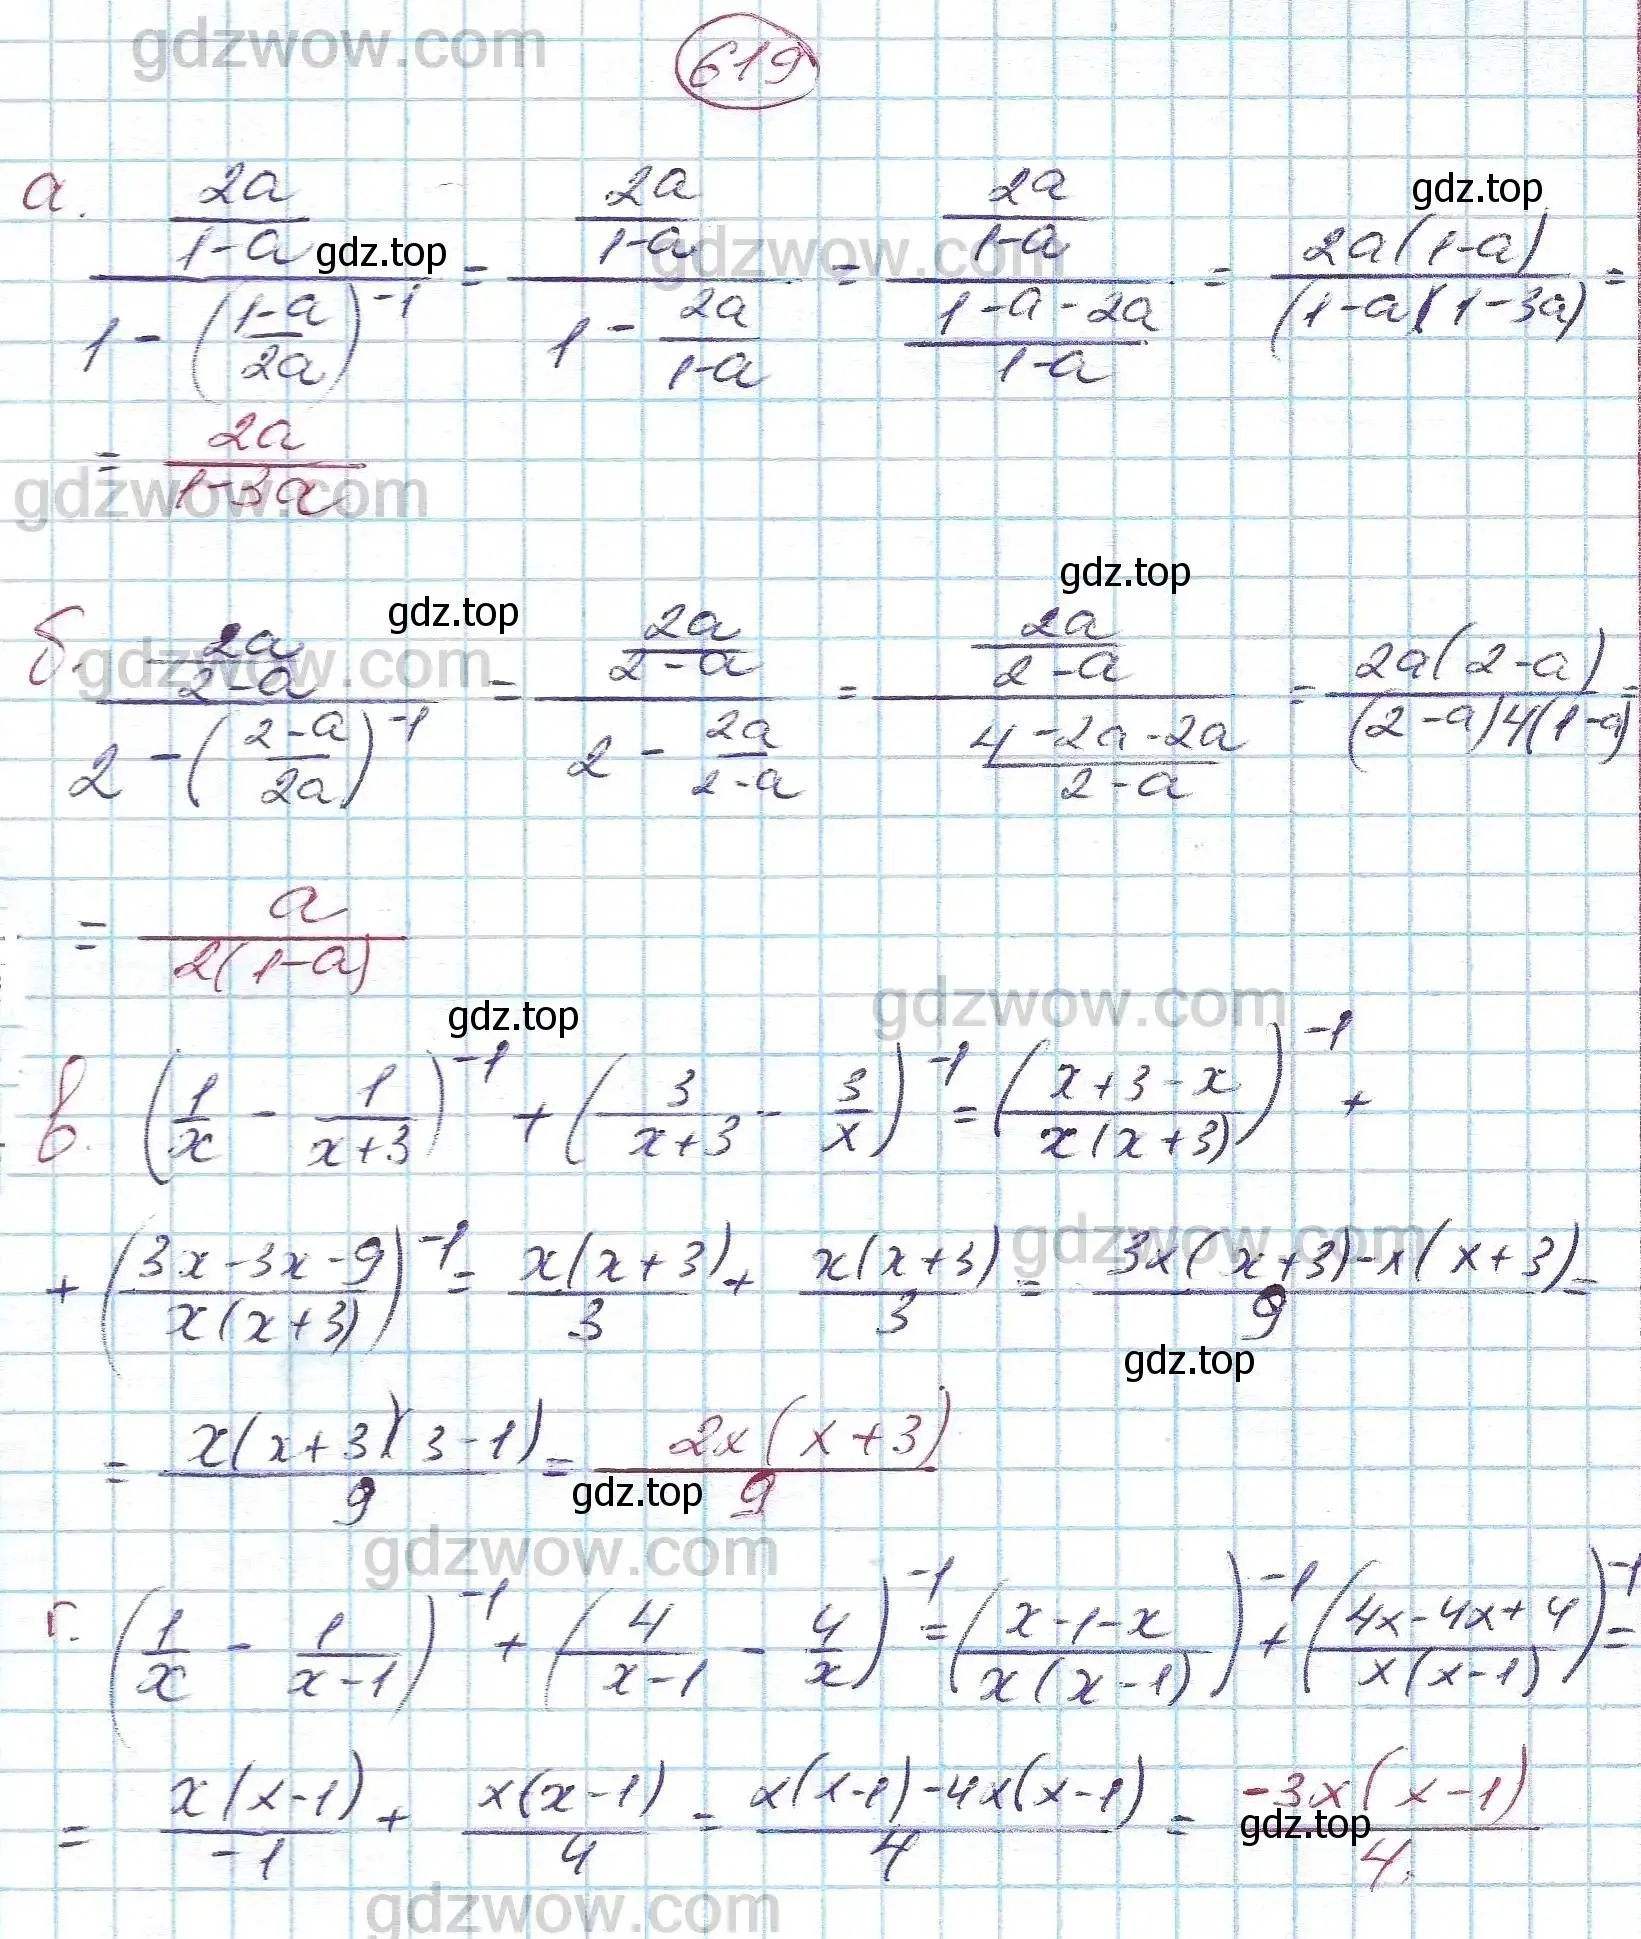 gdzwow.com
619
gdz.top
а. \frac{\frac{2a}{1-a}}{1-(\frac{1-a}{2a})^{-1}} = \frac{\frac{2a}{1-a}}{1-\frac{2a}{1-a}} = \frac{\frac{2a}{1-a}}{\frac{1-a-2a}{1-a}} = \frac{2a(1-a)}{(1-a)(1-3a)} =
gdz.top
gdzwow.com
= \frac{2a}{1-3a}
gdzwow.com
gdz.top
gdz.top
б. \frac{\frac{2a}{2-a}}{2-(\frac{2-a}{2a})^{-1}} = \frac{\frac{2a}{2-a}}{2-\frac{2a}{2-a}} = \frac{\frac{2a}{2-a}}{\frac{4-2a-2a}{2-a}} = \frac{2a(2-a)}{(2-a)4(1-a)} =
gdzwow.com
= \frac{a}{2(1-a)}
gdz.top
gdzwow.com
в. (\frac{1}{x} - \frac{1}{x+3})^{-1} + (\frac{3}{x+3} - \frac{3}{x})^{-1} = (\frac{x+3-x}{x(x+3)})^{-1} +
+ (\frac{3x-3x-9}{x(x+3)})^{-1} = \frac{x(x+3)}{3} + \frac{x(x+3)}{3} = \frac{3x(x+3)-x(x+3)}{9} =
gdzwow.com
gdz.top
= \frac{x(x+3)(3-1)}{9} = \frac{2x(x+3)}{9}
gdz.top
gdzwow.com
г. (\frac{1}{x} - \frac{1}{x-1})^{-1} + (\frac{4}{x-1} - \frac{4}{x})^{-1} = (\frac{x-1-x}{x(x-1)})^{-1} + (\frac{4x-4x+4}{x(x-1)})^{-1} =
= \frac{x(x-1)}{-1} + \frac{x(x-1)}{4} = \frac{x(x-1)-4x(x-1)}{4} = \frac{-3x(x-1)}{4}.
gdz.top
gdzwow.com